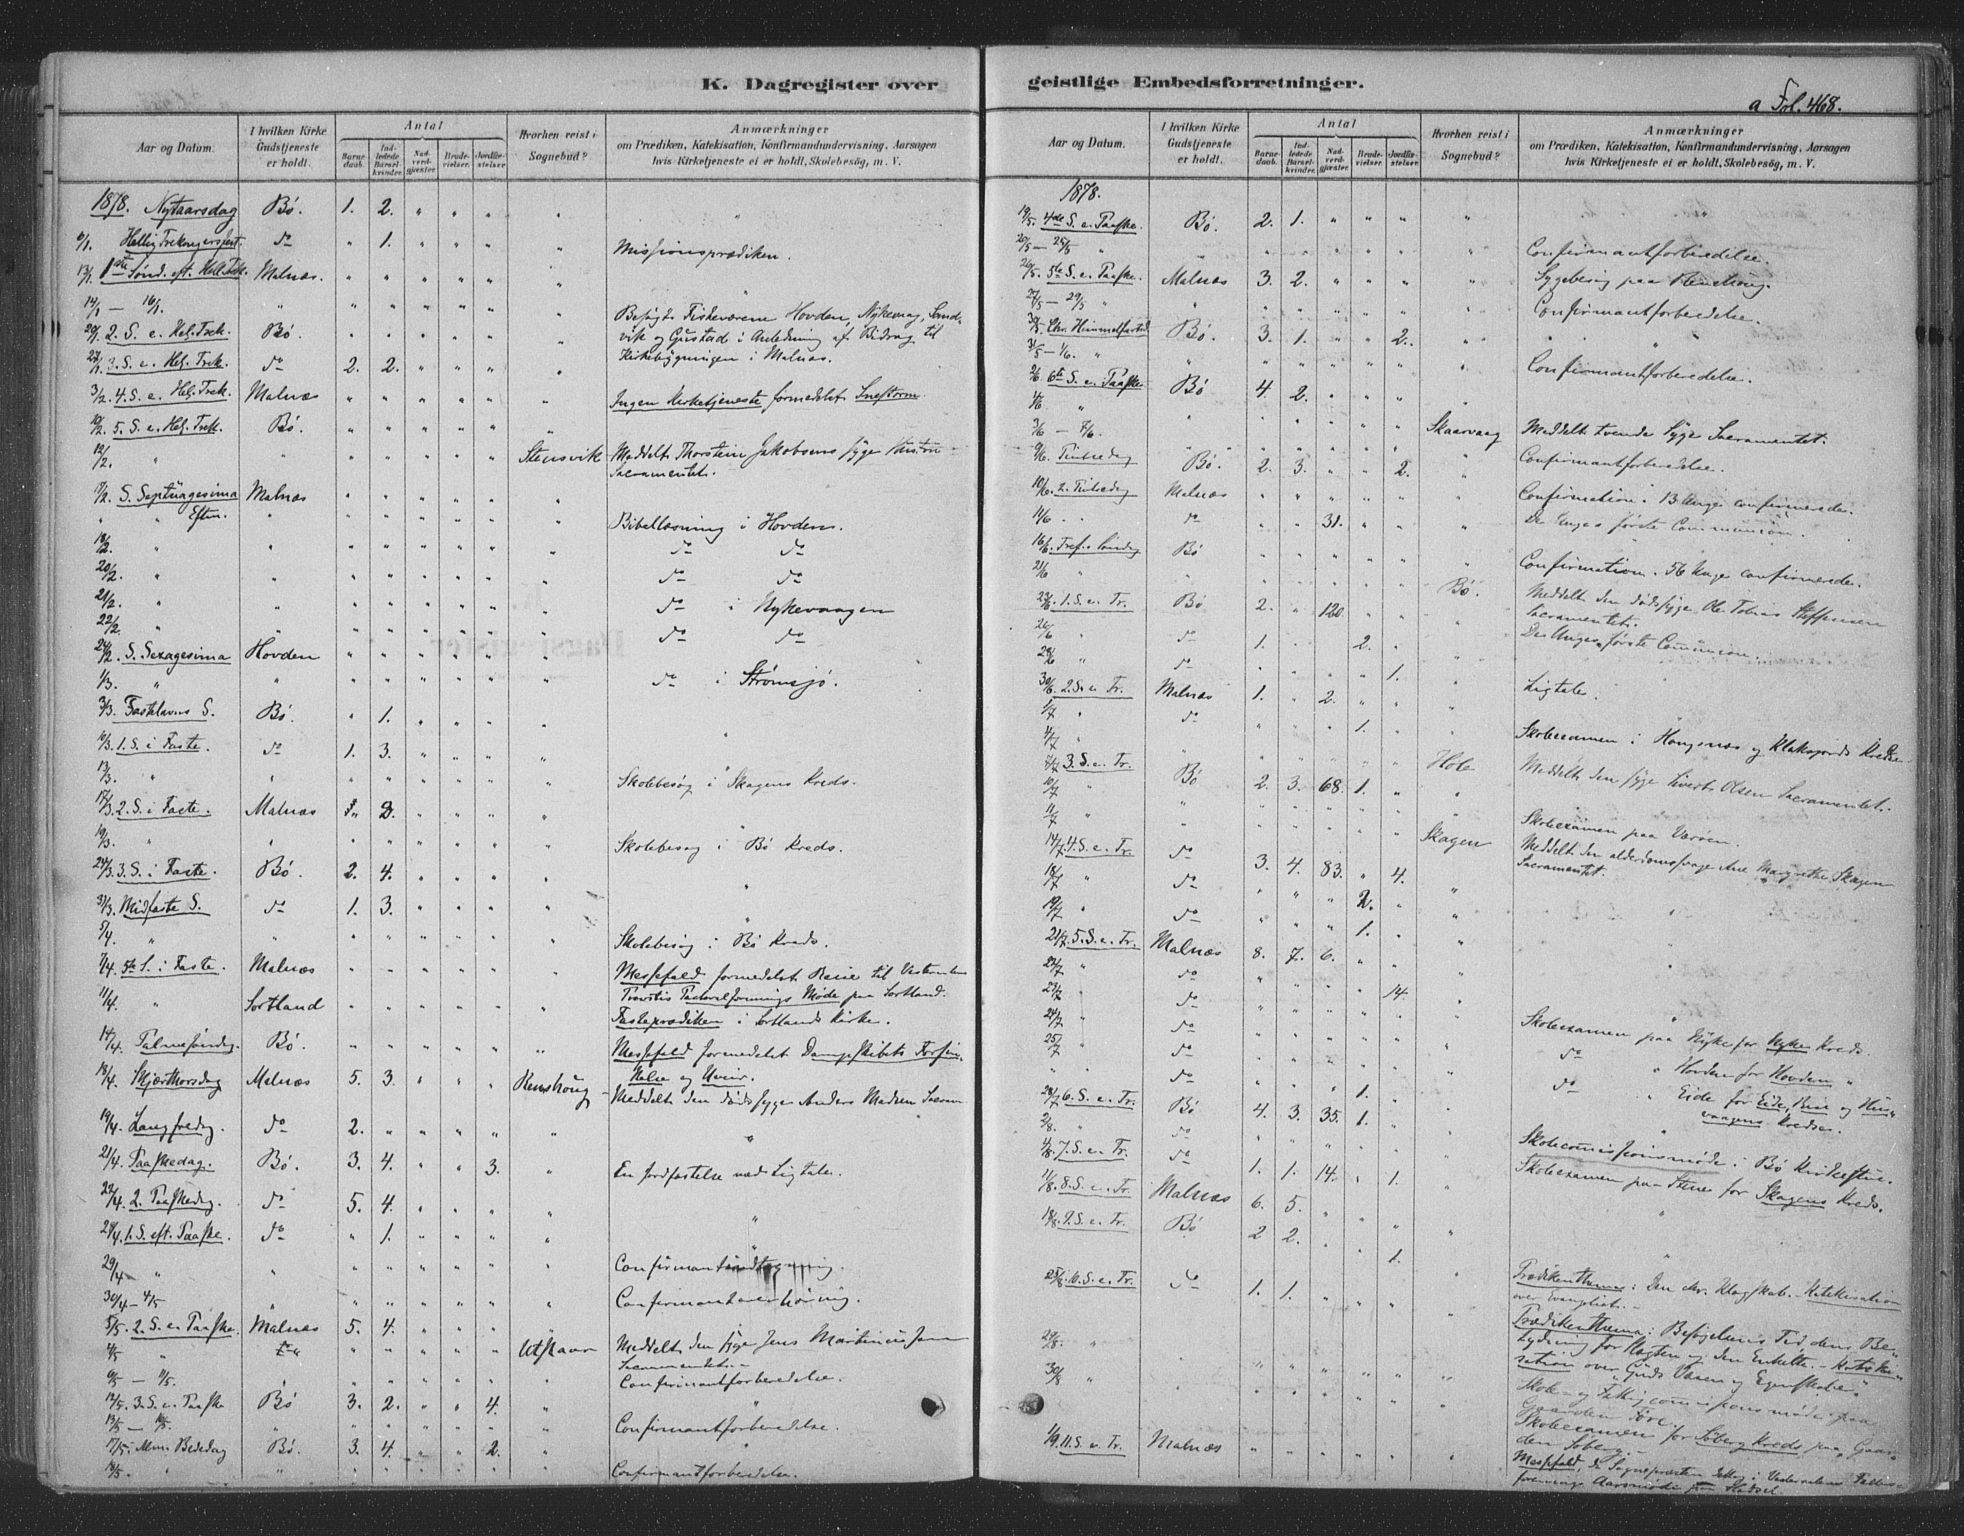 K. Dagregister over
Aar og Datum.
I hvilken Kirke Gudstjeneste er holdt.
Antal
Barnedaab.
Indledede Barselkvinder.
Nadverdgjæster.
Brudevielser.
Jordfæstelser.
Hvorhen reist i Sognebud?
Anmærkninger
om Prædiken, Katekisation, Konfirmandundervisning, Aarsagen
hvis Kirketjeneste ei er holdt, Skolebesög, m. V.
1878. Nytaarsdag Bö. 1. 2. " " " " "
6/1. Hellig Trekongersfest. do " 1. " " " " Missionsprædiken.
13/1. 1ste Sönd. eft. Hell. Trek. Malnæs. " " " " " "
14/1 — 16/1. " " " " " " " Besögte Fiskeværene Hovden, Nykevaag, Sand-
20/1. 2. S. e. Hel. Trek. Bö. " " " " " " vik og Gustad i Anledning af Bidrag til
27/1. 3. S. e. Hel. Trek. do 2. 2. " " " " Kirkebygningen i Malnæs.
3/2. 4. S. e. Hel. Trek. Malnæs " " " " " " Ingen Kirketjeneste formedelst Snestorm.
10/2. 5. S. e. Hel. Trek. Bö. " " " " " "
12/2. " " " " " " Steinsvik Meddelt Thorstein Jakobsens syge Hustru
Sacramentet.
17/2. S. Septuagesima Malnæs " " " " " "
" " Eftm. " " " " " " " Bibellæsning i Hovden.
18/2. " " " " " " " " do do
20/2. " " " " " " " " do do
21/2. " " " " " " " " do i Nykevaagen
22/2. " " " " " " " " do do
24/2. S. Sexagesima Hovden " " " " " "
1/3. " " " " " " " " do i Strömsjö.
3/3. Fastelavns S. Bö. " 1. " " " "
10/3. 1. S. i Faste. do 1. 3. " " " "
13/3. " " " " " " " " Skolebesög i Skagens Kreds.
17/3. 2. S. i Faste. Malnæs " 2. " " " "
19/3. " " " " " " " " Skolebesög i Bö Kreds.
24/3. 3. S. i Faste. Bö. 2. 4. " " " " "
31/3. Midfaste S. do 1. 3. " " " " "
5/4. " " " " " " " " Skolebesög i Bö Kreds.
7/4. 5te S. i Faste. Malnæs " " " " " " Messefald formedelst Reise til Vesteraalens
11/4. " Sortland " " " " " " Provstis Pastoralforenings Möde paa Sortland.
Fasteprædiken i Sortlands Kirke.
14/4. Palmesöndag. Bö. " " " " " " Messefald formedelst Dampskibets Forsin-
kelse og Uveir.
18/4. Skjærthorsdag Malnæs 5. 3. " " " Meddelt den dödssyge Anders Madsen Sacram
19/4. Langfredag. do 2. " " " " " "
21/4. Paaskedag. Bö. 3. 4. " " 3. " En Jordfæstelse med Ligtale.
22/4. 2. Paaskedag. do 5. 4. " " " "
28/4. 1. S. eft. Paaske. do " 1. " " " " "
29/4 " " " " " " " "
30/4 — 4/5 " " " " " " "
5/5. 2. S. e. Paaske. Malnæs 5. 4. " " " "
Meddelt den syge Jens Martinus
Sacramentet.
9/5 — 11/5. Confirmantforberedelse.
12/5. 3. S. e. Paaske Bö 3. 2. " " 4. "
13/5 — " " " " " " " Confirmantforberedelse.
17/5. Alm. Bededag Bö. 3. 4. " " 2. " "
18/5. " " " " " " " Confirmantforberedelse.
geistlige Embedsforretninger.
a Fol. 468.
Aar og Datum.
I hvilken Kirke Gudstjeneste er holdt.
Antal
Barnedaab.
Indledede Barselkvinder.
Nadverdgjæster.
Brudevielser.
Jordfæstelser.
Hvorhen reist i Sognebud?
Anmærkninger
om Prædiken, Katekisation, Konfirmandundervisning, Aarsagen
hvis Kirketjeneste ei er holdt, Skolebesög, m. V.
1878.
19/5. 4de S. e. Paaske. Bö. 2. 1. " " " " "
20/5 — 25/5 " " " " " " " Confirmantforberedelse.
26/5. 5te S. e. Paaske. Malnæs 3. 2. " " " " Sygebesög paa
27/5 — 29/5 " " " " " " " Confirmantforberedelse.
30/5. Chr. Himmelfartsd. Bö. 3. 1. " " 2. " "
31/5 — 1/6. " " " " " " " Confirmantforberedelse.
2/6. 6te S. e. Paaske. Bö 4. 2. " " " "
4/6 " " " " " " Skaarvaag Meddelt tvende syge Sacramentet.
3/6 — 7/6. " " " " " " Confirmantforberedelse.
9/6. Pintsedag Bö. 2. 3. " " 2. "
10/6. 2. Pintsedag Malnæs " " " " " " Confirmation. 13 Unge confirmerede.
11/6. " do " " 31. " " " De Unges förste Communion.
16/6. Tref. Söndag Bö " " " " " " Confirmation. 56 Unge confirmerede.
21/6 " " " " " " Bö. Meddelt den dödssyge Ole Tobias Steffensen
Sacramentet.
23/6. 1. S. e. Tr. Bö 2. " 120. " " " De Unges förste Communion.
26/6 " do 1. " " 2. " "
29/6 " do " " " " 1. " Ligtale.
30/6. 2. S. e. Tr. Malnæs 1. " 2. " " "
1/7 " do " " " 1. " "
4/7 " Skoleexamen i og Klaksjords Kredse.
7/7. 3. S. e. Tr. Bö 2. 3. 68. 1. " Hole Meddelt den syge Sivert Olsen Sacramentet.
10/7 " " " " " " " "
11/7 " " " " " " Skagen Skoleexamen paa Værøen.
14/7. 4. S. e. Tr. do 3. 4. 83. " 4. Meddelt den alderdomssvage Ane Margrethe Skagen
Sacramentet.
18/7 " do " " " 2. " "
19/7 " do " " " 1. " "
21/7. 5. S. e. Tr. Malnæs 8. 7. 6. " " "
22/7 " do " " " " 14. "
23/7 " do " " " " " " Skoleexamen paa Nyke for Nyke Kreds.
24/7 " do " " " " " " do " Hovden for Hovden "
25/7 " do " " " " " " do " Eide for Eide, og
" " do " " " 1. " " Kredse.
28/7. 6. S. e. Tr. Bö 4. 3. 35. 1. " "
2/8. " do " " " " " " Skolecomissionsmöde i Bö
4/8. 7. S. e. Tr. do 1. 1. 14. " 1. " Skoleexamen paa Steine for Skagens Kreds.
11/8. 8. S. e. Tr. Malnæs 6. 5. " " " "
18/8. 9. S. e. Tr. Bö 2 2. " " 1. " "
25/8. 10. S. e. Tr. do 1. 1. " " " " Prædikenthema: Den chr. Klogskab. Katekisation
over Evangeliet. -
Prædikenthema: Besögelsens Tid, dens Be-
tydning for Slægten og den Enkelte. - Kateki-
sation over "Guds Væsen og Egenskaber".
29/8. " Skole- og möde paa
Gaarden
30/8 " Skoleexamen for Söberg Kreds paa Gaar-
den Söberg. -
1/9. 11. S. e. Tr. Malnæs " " " " " " Messefald, da Sognepræsten deltog i Vesteraalens
forenings Aarsmöde paa Hadsel